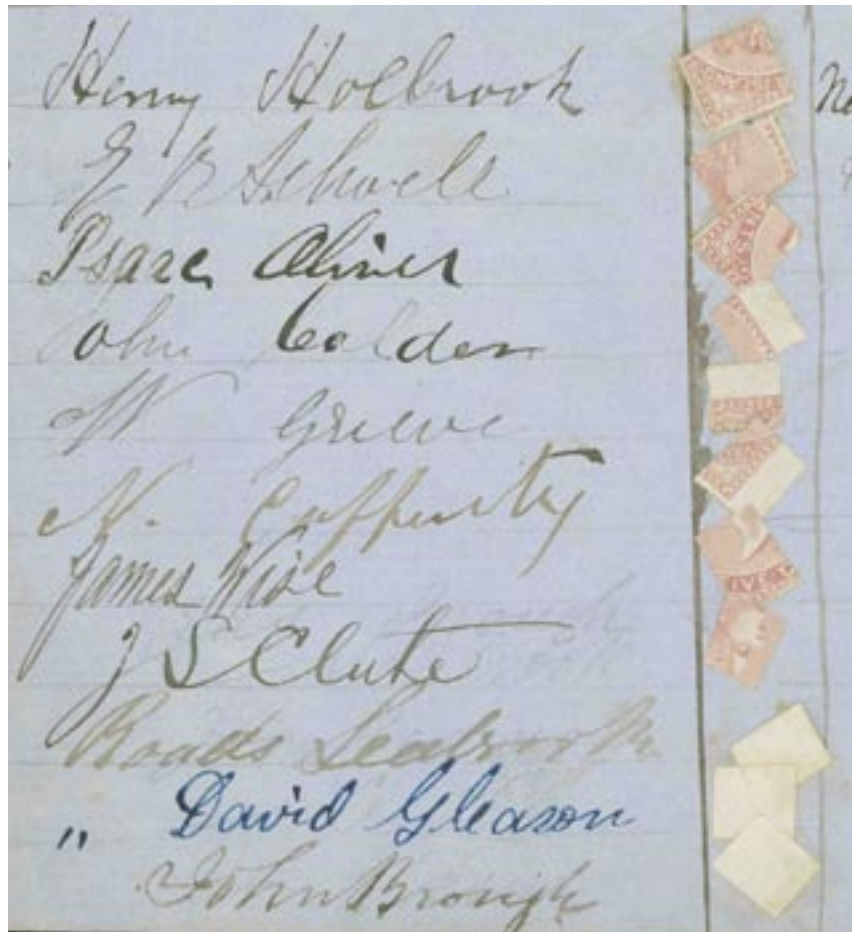 Henry Holbrook
E B Ashwell
Isaac Oliver
John Calder
W Grieve
N. Cafferty
James Wise
J S Clute
Roads Seabrook
" David Gleason
John Brough